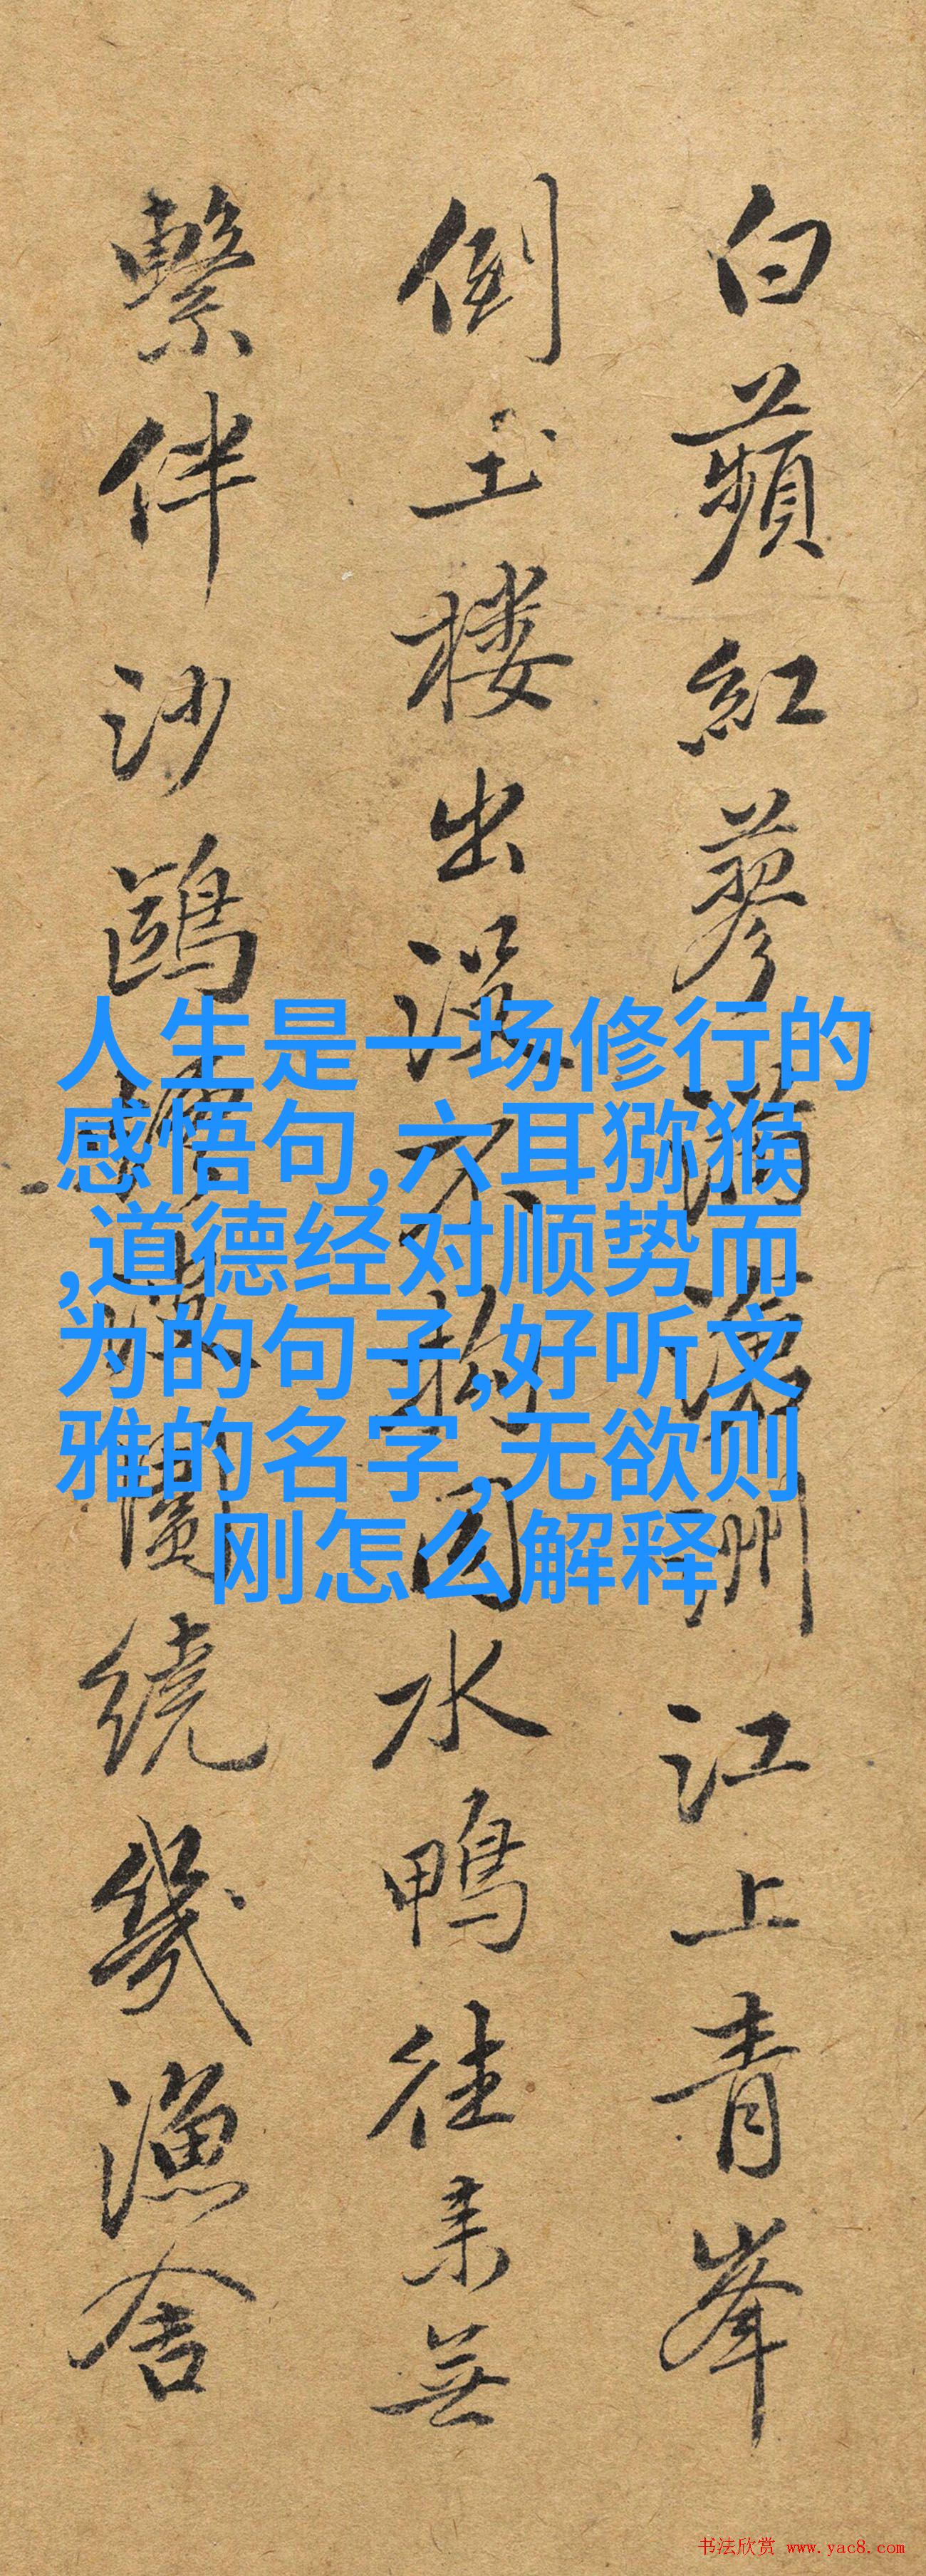 白蘋紅蓼滿滄洲江上青峯
倒玉楼出沒不拘同水鴨往来無
繫伴沙鷗圍繞幾漁舍
人生是一场修行的
感悟句,六耳猕猴
,道德经对顺势而
为的句子,好听文
雅的名字,无欲则
刚怎么解释
书法欣赏 www.yac8.com